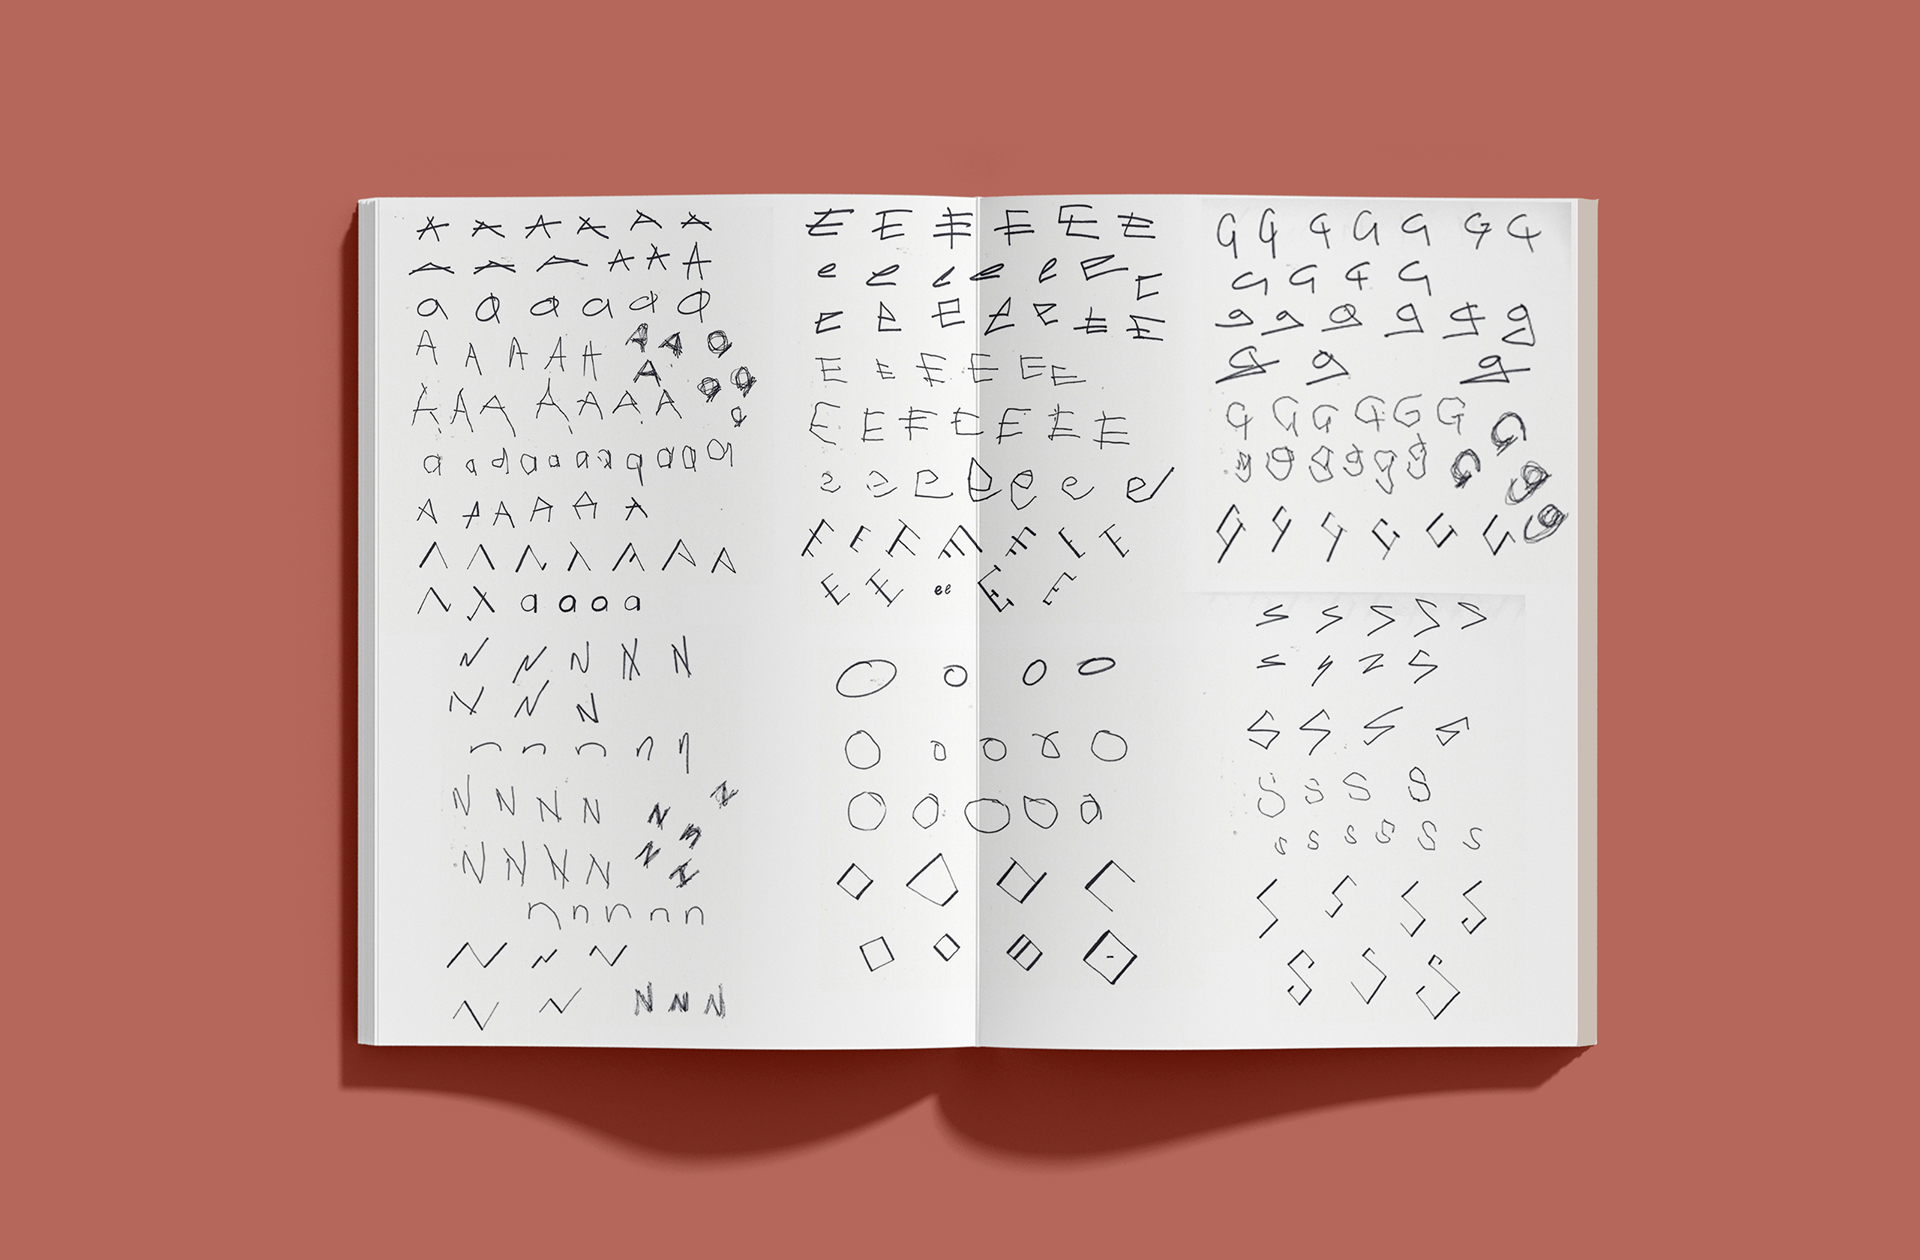 A A A A A A
A A A A A A
a a a a a a
A A A A A A A a
A
A A A A A A A a a a
a a a a a a a a a a a
A A A A A A
A A A A A A A
A A a a a a
N N N N N
N N N
n n n n n
N N N N N N N
N N N N N N
n n n n n
N N N
N N N N N
E E E E E E
e e e e e E E
E E E E E E E
E E E E E E
E E E E E E E
e e e e e e e
E E E E E E E
E E ee E E
O O O O
O O O O O
O O O O O
O O O O
O O O O
G G G G G G G
G G G G
g g g g g g
g g g
G G G G G G G
g g g g g g G g
G G G G G G g
S S S S S
S S S S
S S S S
S S S S
s s s s s s
S S S S
S S S